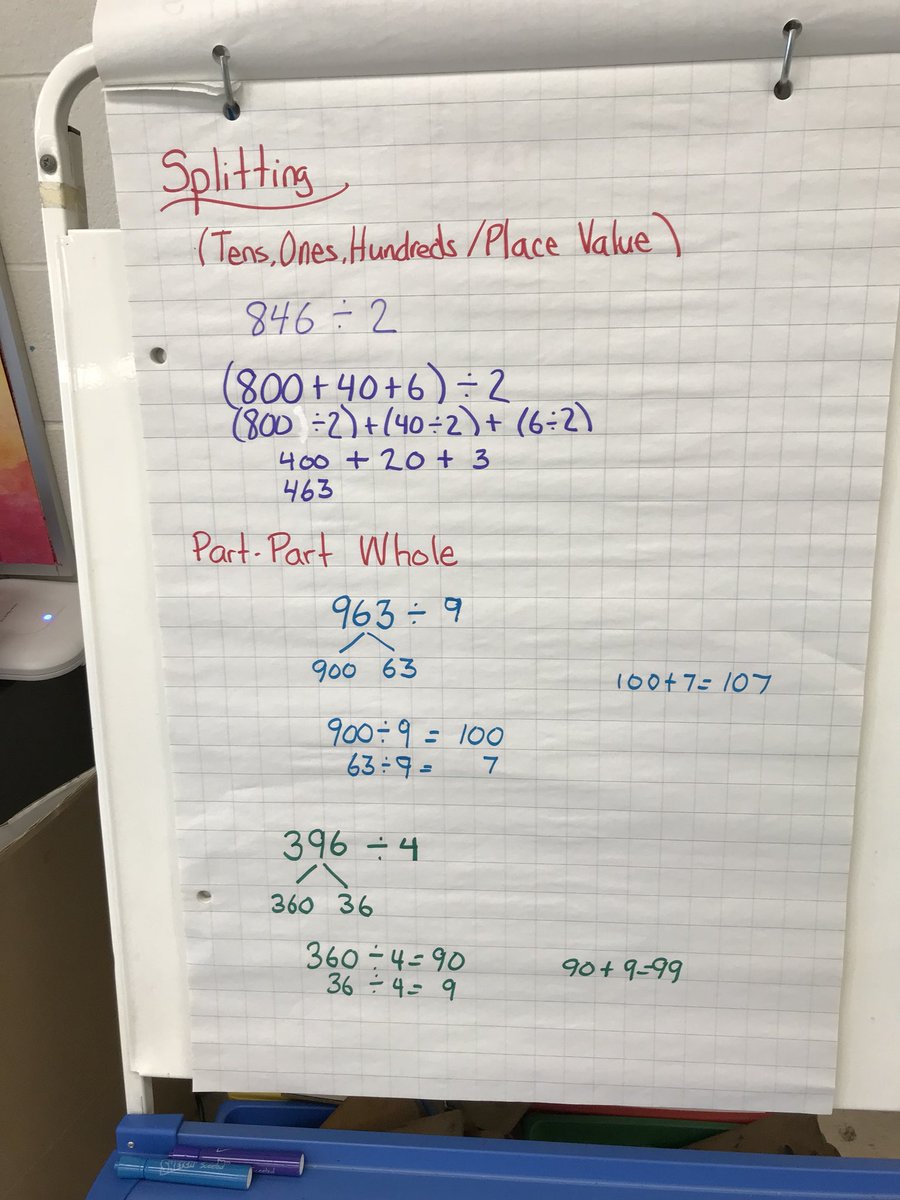 Splitting
(Tens, Ones, Hundreds / Place Value)
846 ÷ 2
(800 + 40 + 6) ÷ 2
(800 ÷2) + (40÷2) + (6÷2)
400 + 20 + 3
463
Part-Part Whole
963 ÷ 9
900 63
100+7=107
900÷9 = 100
63÷9 = 7
396 ÷ 4
360 36
360 ÷ 4 = 90
90 + 9=99
36 ÷ 4 = 9